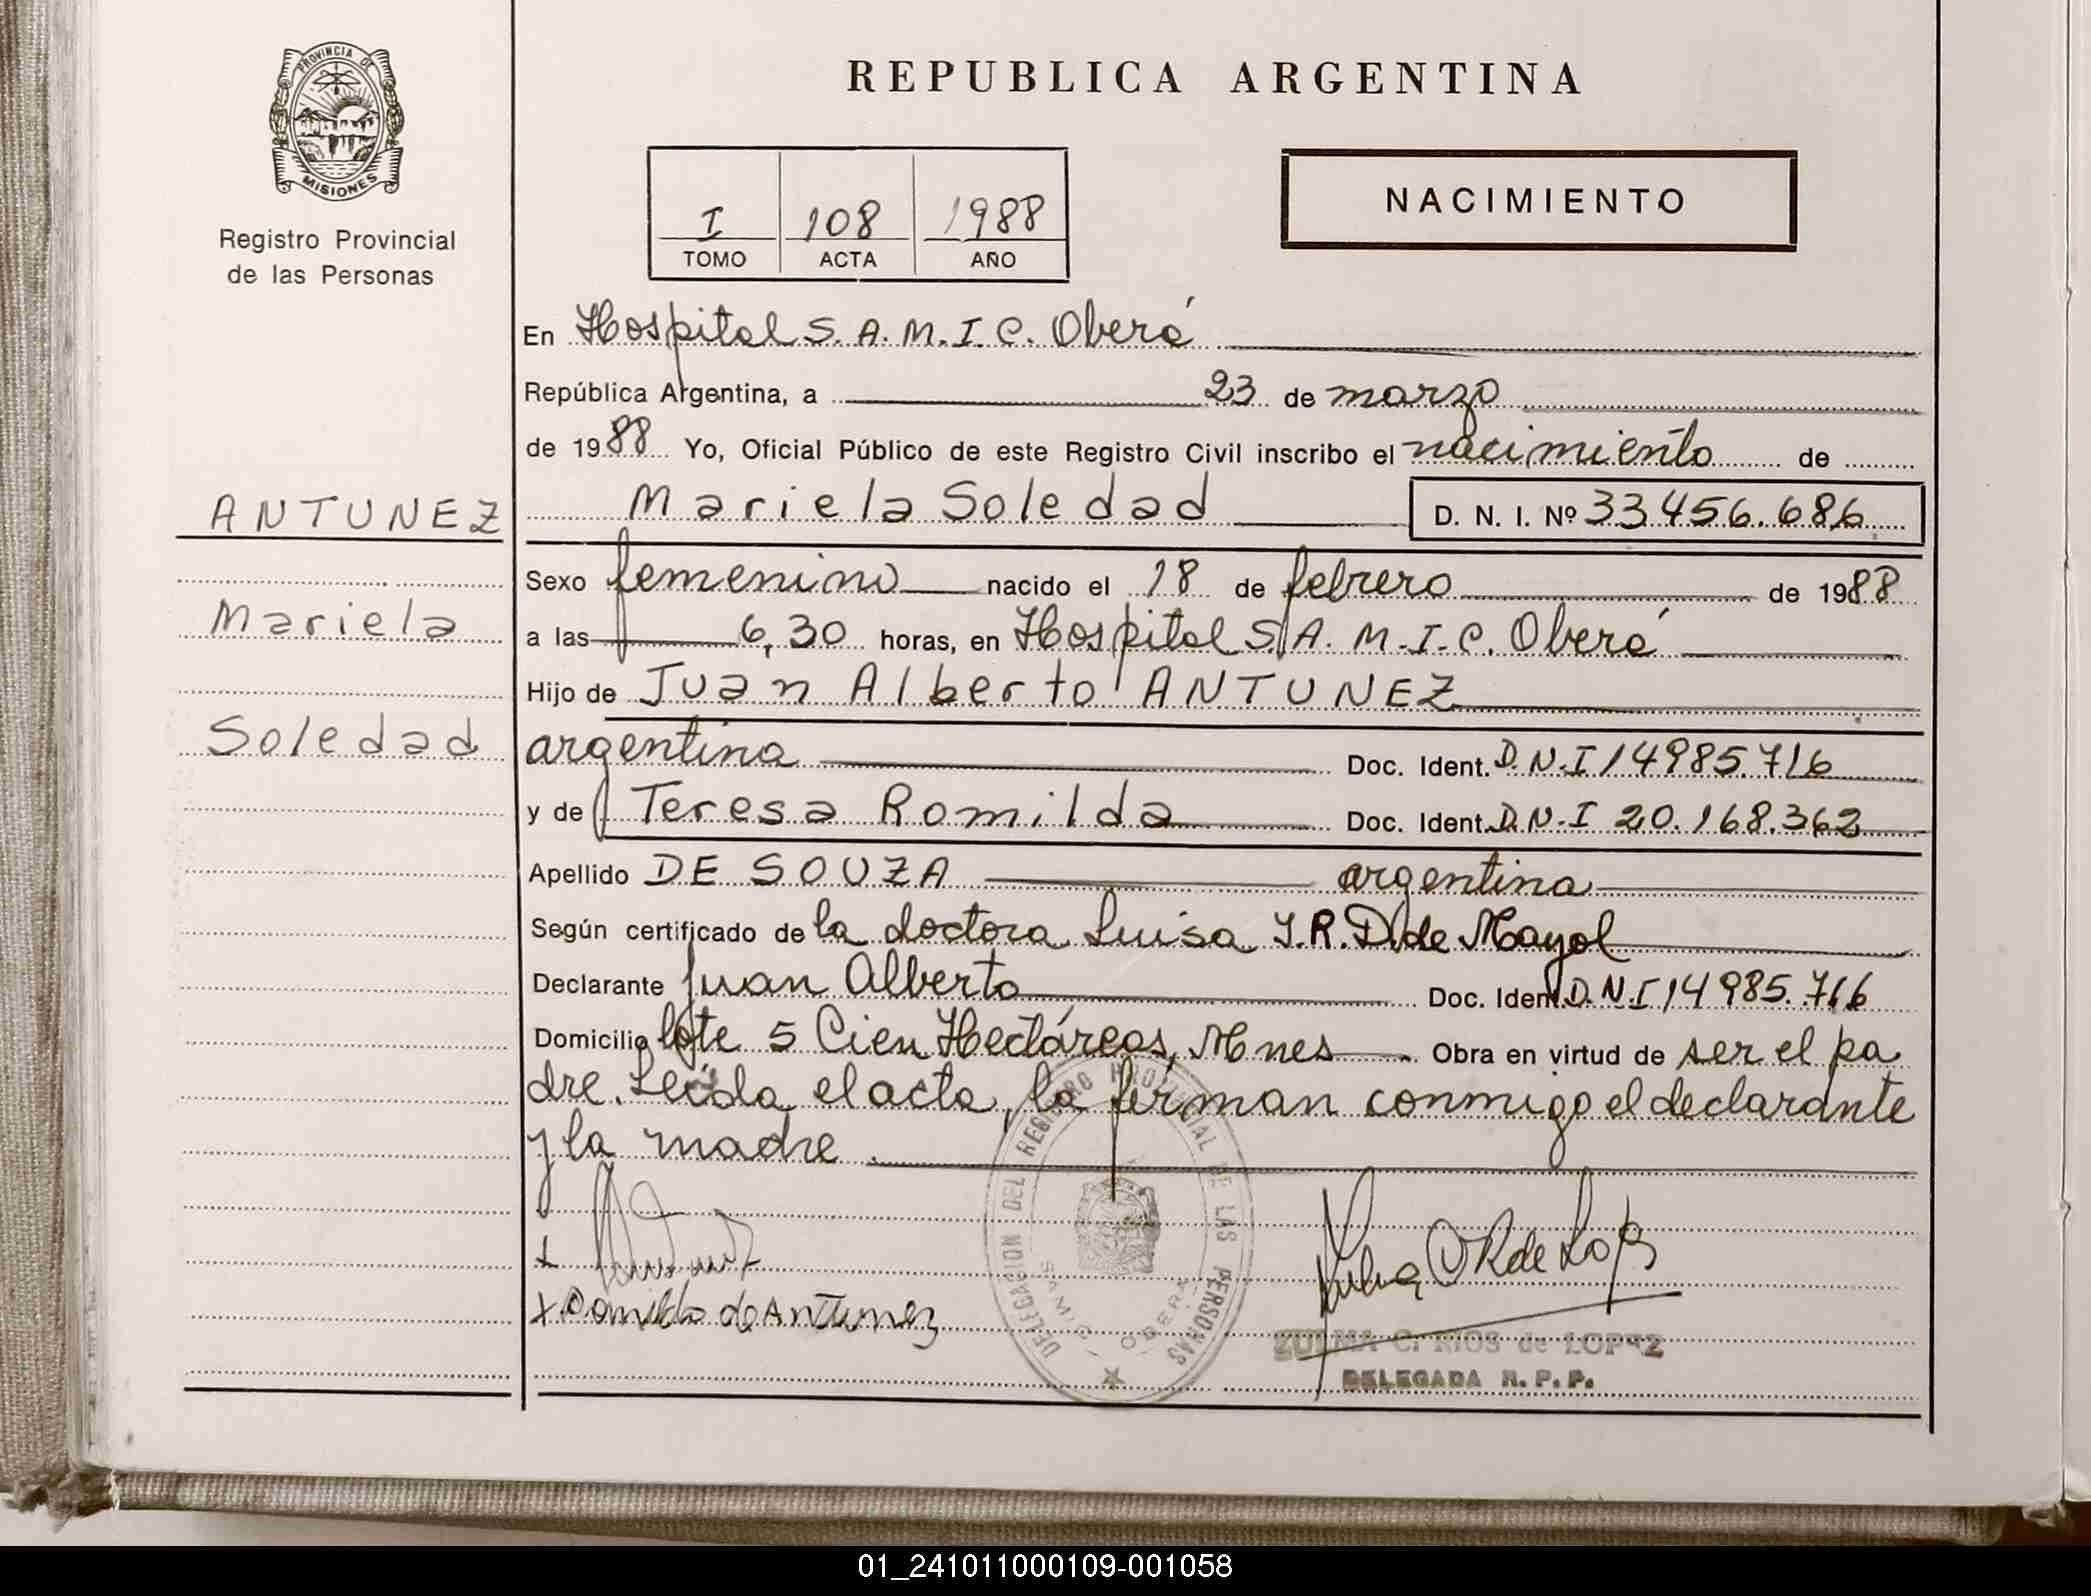 PROVINCIA DE
MISIONES
Registro Provincial
de las Personas
REPUBLICA ARGENTINA
I 108 1988
TOMO ACTA AÑO
NACIMIENTO
En Hospital S.A.M.I.C. Oberá
República Argentina, a 23 de marzo
de 1988 Yo, Oficial Público de este Registro Civil inscribo el nacimiento de
ANTUNEZ
Mariela Soledad D. N. I. Nº 33456.686
Sexo femenino nacido el 18 de febrero de 1988
Mariela
a las 6,30 horas, en Hospital S.A.M.I.C. Oberá
Hijo de Juan Alberto ANTUNEZ
Soledad
argentina Doc. Ident. D.N.I 14985.716
y de Teresa Romilda Doc. Ident. D.N.I 20.168.362
Apellido DE SOUZA argentina
Según certificado de la doctora Luisa Y.R.D. de Mayol
Declarante Juan Alberto Doc. Ident. D.N.I 14985.716
Domicilio lote 5 Cien Hectáreas, Mnes Obra en virtud de ser el pa
dre. Leída el acta, la firman conmigo el declarante
y la madre.
DELEGACION DEL REGISTRO PROVINCIAL DE LAS PERSONAS
SAMIC - OBERA
x
x Romilda de Antunez
ZULMA C. RIOS de LOPEZ
DELEGADA R. P. P.
01_241011000109-001058